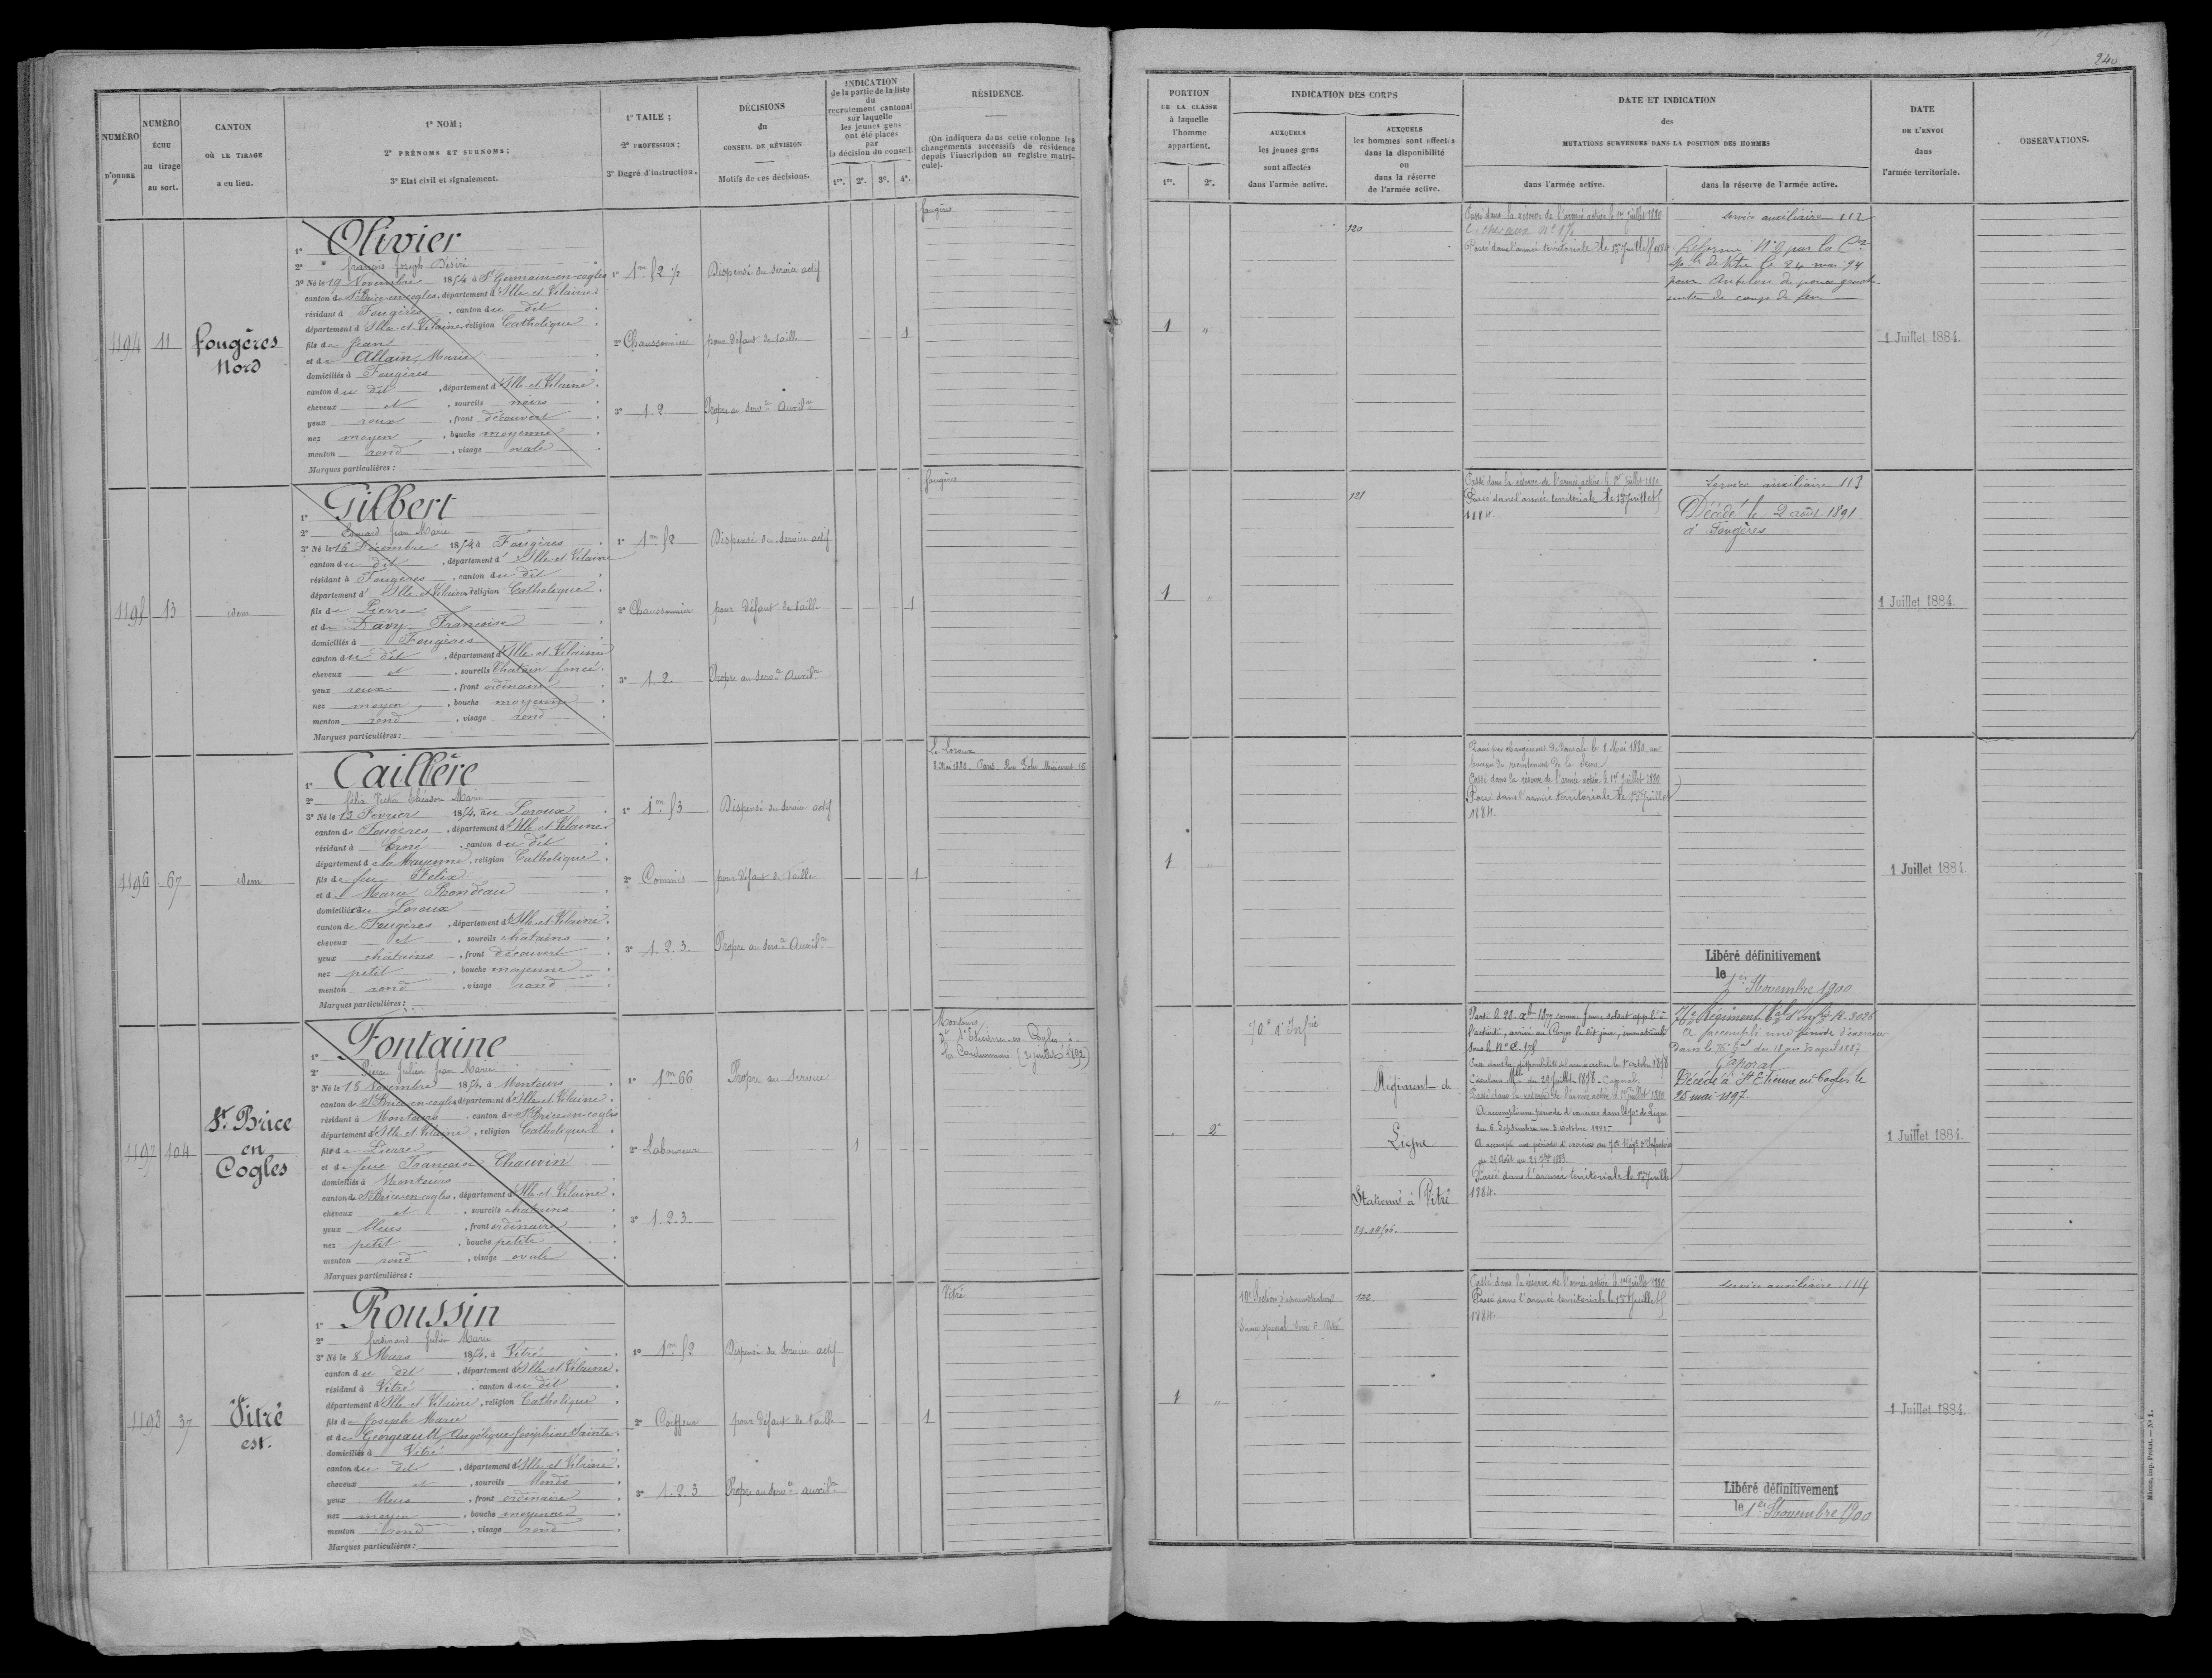 240
NUMÉRO
D'ORDRE
NUMÉRO
ÉCHU
au tirage
au sort.
CANTON
OÙ LE TIRAGE
a eu lieu.
1° NOM ;
2° PRÉNOMS ET SURNOMS ;
3° Etat civil et signalement.
1° TAILE ;
2° PROFESSION ;
3° Degré d'instruction.
DÉCISIONS
du
CONSEIL DE RÉVISION
Motifs de ces décisions.
INDICATION
de la partie de la liste
du
recrutement cantonal
sur laquelle
les jeunes gens
ont été placés
par
la décision du conseil.
1re. 2e. 3e. 4e.
RÉSIDENCE.
(On indiquera dans cette colonne les
changements successifs de résidence
depuis l'inscription au registre matri-
cule).
PORTION
DE LA CLASSE
à laquelle
l'homme
appartient.
1re. 2e.
INDICATION DES CORPS
AUXQUELS
les jeunes gens
sont affectés
dans l'armée active.
AUXQUELS
les hommes sont affectés
dans la disponibilité
ou
dans la réserve
de l'armée active.
DATE ET INDICATION
des
MUTATIONS SURVENUES DANS LA POSITION DES HOMMES
dans l'armée active.
dans la réserve de l'armée active.
DATE
DE L'ENVOI
dans
l'armée territoriale.
OBSERVATIONS.
1194
11
Fougères
Nord
1° Olivier
2° François Joseph Désiré
3° Né le 19 Novembre 1854 à St Germain-en-cogles
canton de St Brice-en-cogles, département d'Ille-et-Vilaine
résidant à Fougères, canton du dit
département d'Ille-et-Vilaine religion Catholique.
fils de Jean
et de Allain, Marie
domiciliés à Fougères
canton du dit, département d'Ille-et-Vilaine.
cheveux et, sourcils noirs
yeux roux, front découvert
nez moyen, bouche moyenne
menton rond, visage ovale
Marques particulières :
1° 1m 52 1/2
2° Chaussonnier
3° 1 2
Dispensé du service actif
pour défaut de taille
Propre au servce Auxilre
1
Fougères
1 "
120
Passé dans la réserve de l'armée active le 1er Juillet 1880
Passé dans l'armée territoriale le 1er Juillet 1884
Service auxiliaire 112
Réformé N° 2 par la Con
sple de Vitré le 24 mai 94
pour Ankylose du pouce gauche
suite de coup de feu
1 Juillet 1884.
1195
13
idem
1° Gilbert
2° Edouard Jean Marie
3° Né le 16 Décembre 1854 à Fougères
canton du dit, département d'Ille-et-Vilaine
résidant à Fougères, canton du dit
département d'Ille-et-Vilaine religion Catholique.
fils de Pierre
et de Davy Françoise
domiciliés à Fougères
canton du dit, département d'Ille-et-Vilaine
cheveux et, sourcils Chatain foncé.
yeux roux, front ordinaire
nez moyen, bouche moyenne
menton rond, visage rond
Marques particulières :
1° 1m 52
2° Chaussonnier
3° 1. 2.
Dispensé du service actif
pour défaut de taille
Propre au servce Auxilre
1
Fougères
1 "
121
Passé dans la réserve de l'armée active le 1er Juillet 1880
Passé dans l'armée territoriale le 1er Juillet
1884.
Service auxiliaire 113
Décédé le 2 août 1891
à Fougères
1 Juillet 1884.
1196
67
idem
1° Caillère
2° Félix Victor Théodore Marie
3° Né le 13 Février 1854, au Loroux
canton de Fougères, département d'Ille-et-Vilaine
résidant à Ernée canton du dit
département de la Mayenne, religion Catholique.
fils de feu Félix
et de Marie Rondeau
domiciliée au Loroux
canton de Fougères, département d'Ille-et-Vilaine.
cheveux et, sourcils châtains
yeux châtains, front découvert
nez petit, bouche moyenne
menton rond, visage rond
Marques particulières :
1° 1m 53
2° Commis
3° 1. 2. 3.
Dispensé du service actif
pour défaut de taille
Propre au servce Auxilre
1
Le Loroux
8 Mai 1880. Paris Rue Folie Méricourt 16
1 "
Passé par changement de domicile le 8 Mai 1880 au
bureau de recrutement de la Seine
Passé dans la réserve de l'armée active le 1er Juillet 1880
Passé dans l'armée territoriale le 1er Juillet
1884.
Libéré définitivement
le 1er Novembre 1900
1 Juillet 1884.
1197
104
St. Brice
en
Cogles
1° Fontaine
2° Pierre Julien Jean Marie
3° Né le 15 Novembre 1854, à Montours
canton de St Brice-en-cogles département d'Ille-et-Vilaine.
résidant à Montours, canton de St Brice-en-cogles
département d'Ille-et-Vilaine, religion Catholique.
fils de Pierre
et de feue Françoise Chauvin
domiciliés à Montours
canton de St Brice-en-cogles, département d'Ille-et-Vilaine.
cheveux et, sourcils châtains
yeux bleus, front ordinaire
nez petit, bouche petite
menton rond, visage ovale
Marques particulières :
1° 1m 66
2° Laboureur
3° 1. 2. 3.
Propre au service
1
Montours
St Etienne-en-Cogles
" 2e
70e d'Infrie
Régiment de
Ligne
Stationné à Vitré
Passé dans la réserve de l'armée active le 1er Juillet 1880
A accompli une période d'exercices dans le 70e de Ligne
du 6 Septembre au 3 octobre 1881.
A accompli une période d'exercices au 70e Régt d'Infanterie
Passé dans l'armée territoriale le 1er Juillet
1884.
76e Régiment tal d'Infie
A accompli une période d'exercices
dans le 76e tal du 18 au 30 avril 1887
Caporal
Décédé à St Etienne en Cogles le
25 mai 1897.
1 Juillet 1884.
1198
37
Vitré
est.
1° Roussin
2° Ferdinand Julien Marie
3° Né le 8 Mars 1854, à Vitré
canton du dit, département d'Ille-et-Vilaine.
résidant à Vitré, canton du dit
département d'Ille-et-Vilaine, religion Catholique.
fils de Joseph Marie
et de Georgeault, Angélique Joséphine Sainte.
domiciliés à Vitré
canton du dit, département d'Ille-et-Vilaine.
cheveux et, sourcils blonds
yeux bleus, front ordinaire
nez moyen, bouche moyenne
menton rond, visage rond
Marques particulières :
1° 1m 52
2° Coiffeur
3° 1. 2. 3
Dispensé du service actif
pour défaut de taille
Propre au servce auxilre
1
Vitré
1 "
10e Section d'administration
122
Passé dans la réserve de l'armée active le 1er Juillet 1880
Passé dans l'armée territoriale le 1er Juillet
1884.
Service auxiliaire 114
Libéré définitivement
le 1er Novembre 1900
1 Juillet 1884.
Mâcon, imp. Protat. — N° 1.